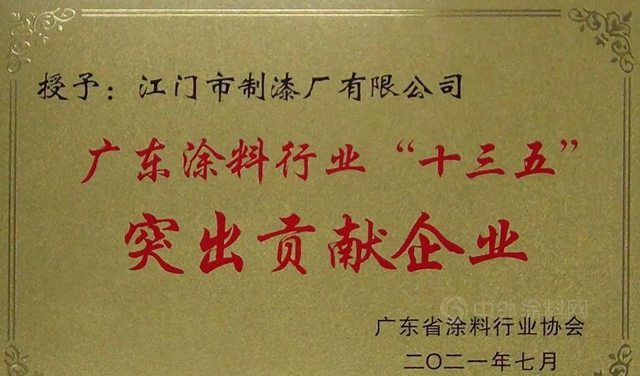 授予：江门市制漆厂有限公司
广东涂料行业“十三五”
突出贡献企业
中外涂料网
广东省涂料行业协会
二〇二一年七月